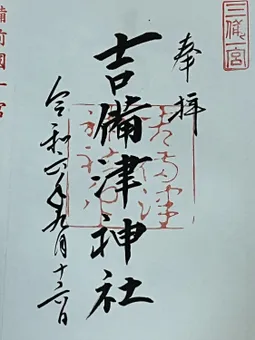 三備一宮
奉拝
吉備津神社
吉備津
令和六年九月十六日
備前國一宮